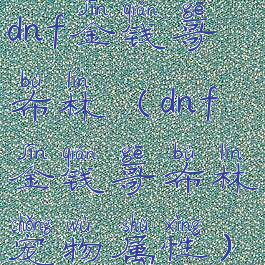 jīn qián gē
dnf金钱哥
bù lín
布林（dnf
jīn qián gē bù lín
金钱哥布林
chǒng wù shǔ xìng
宠物属性）